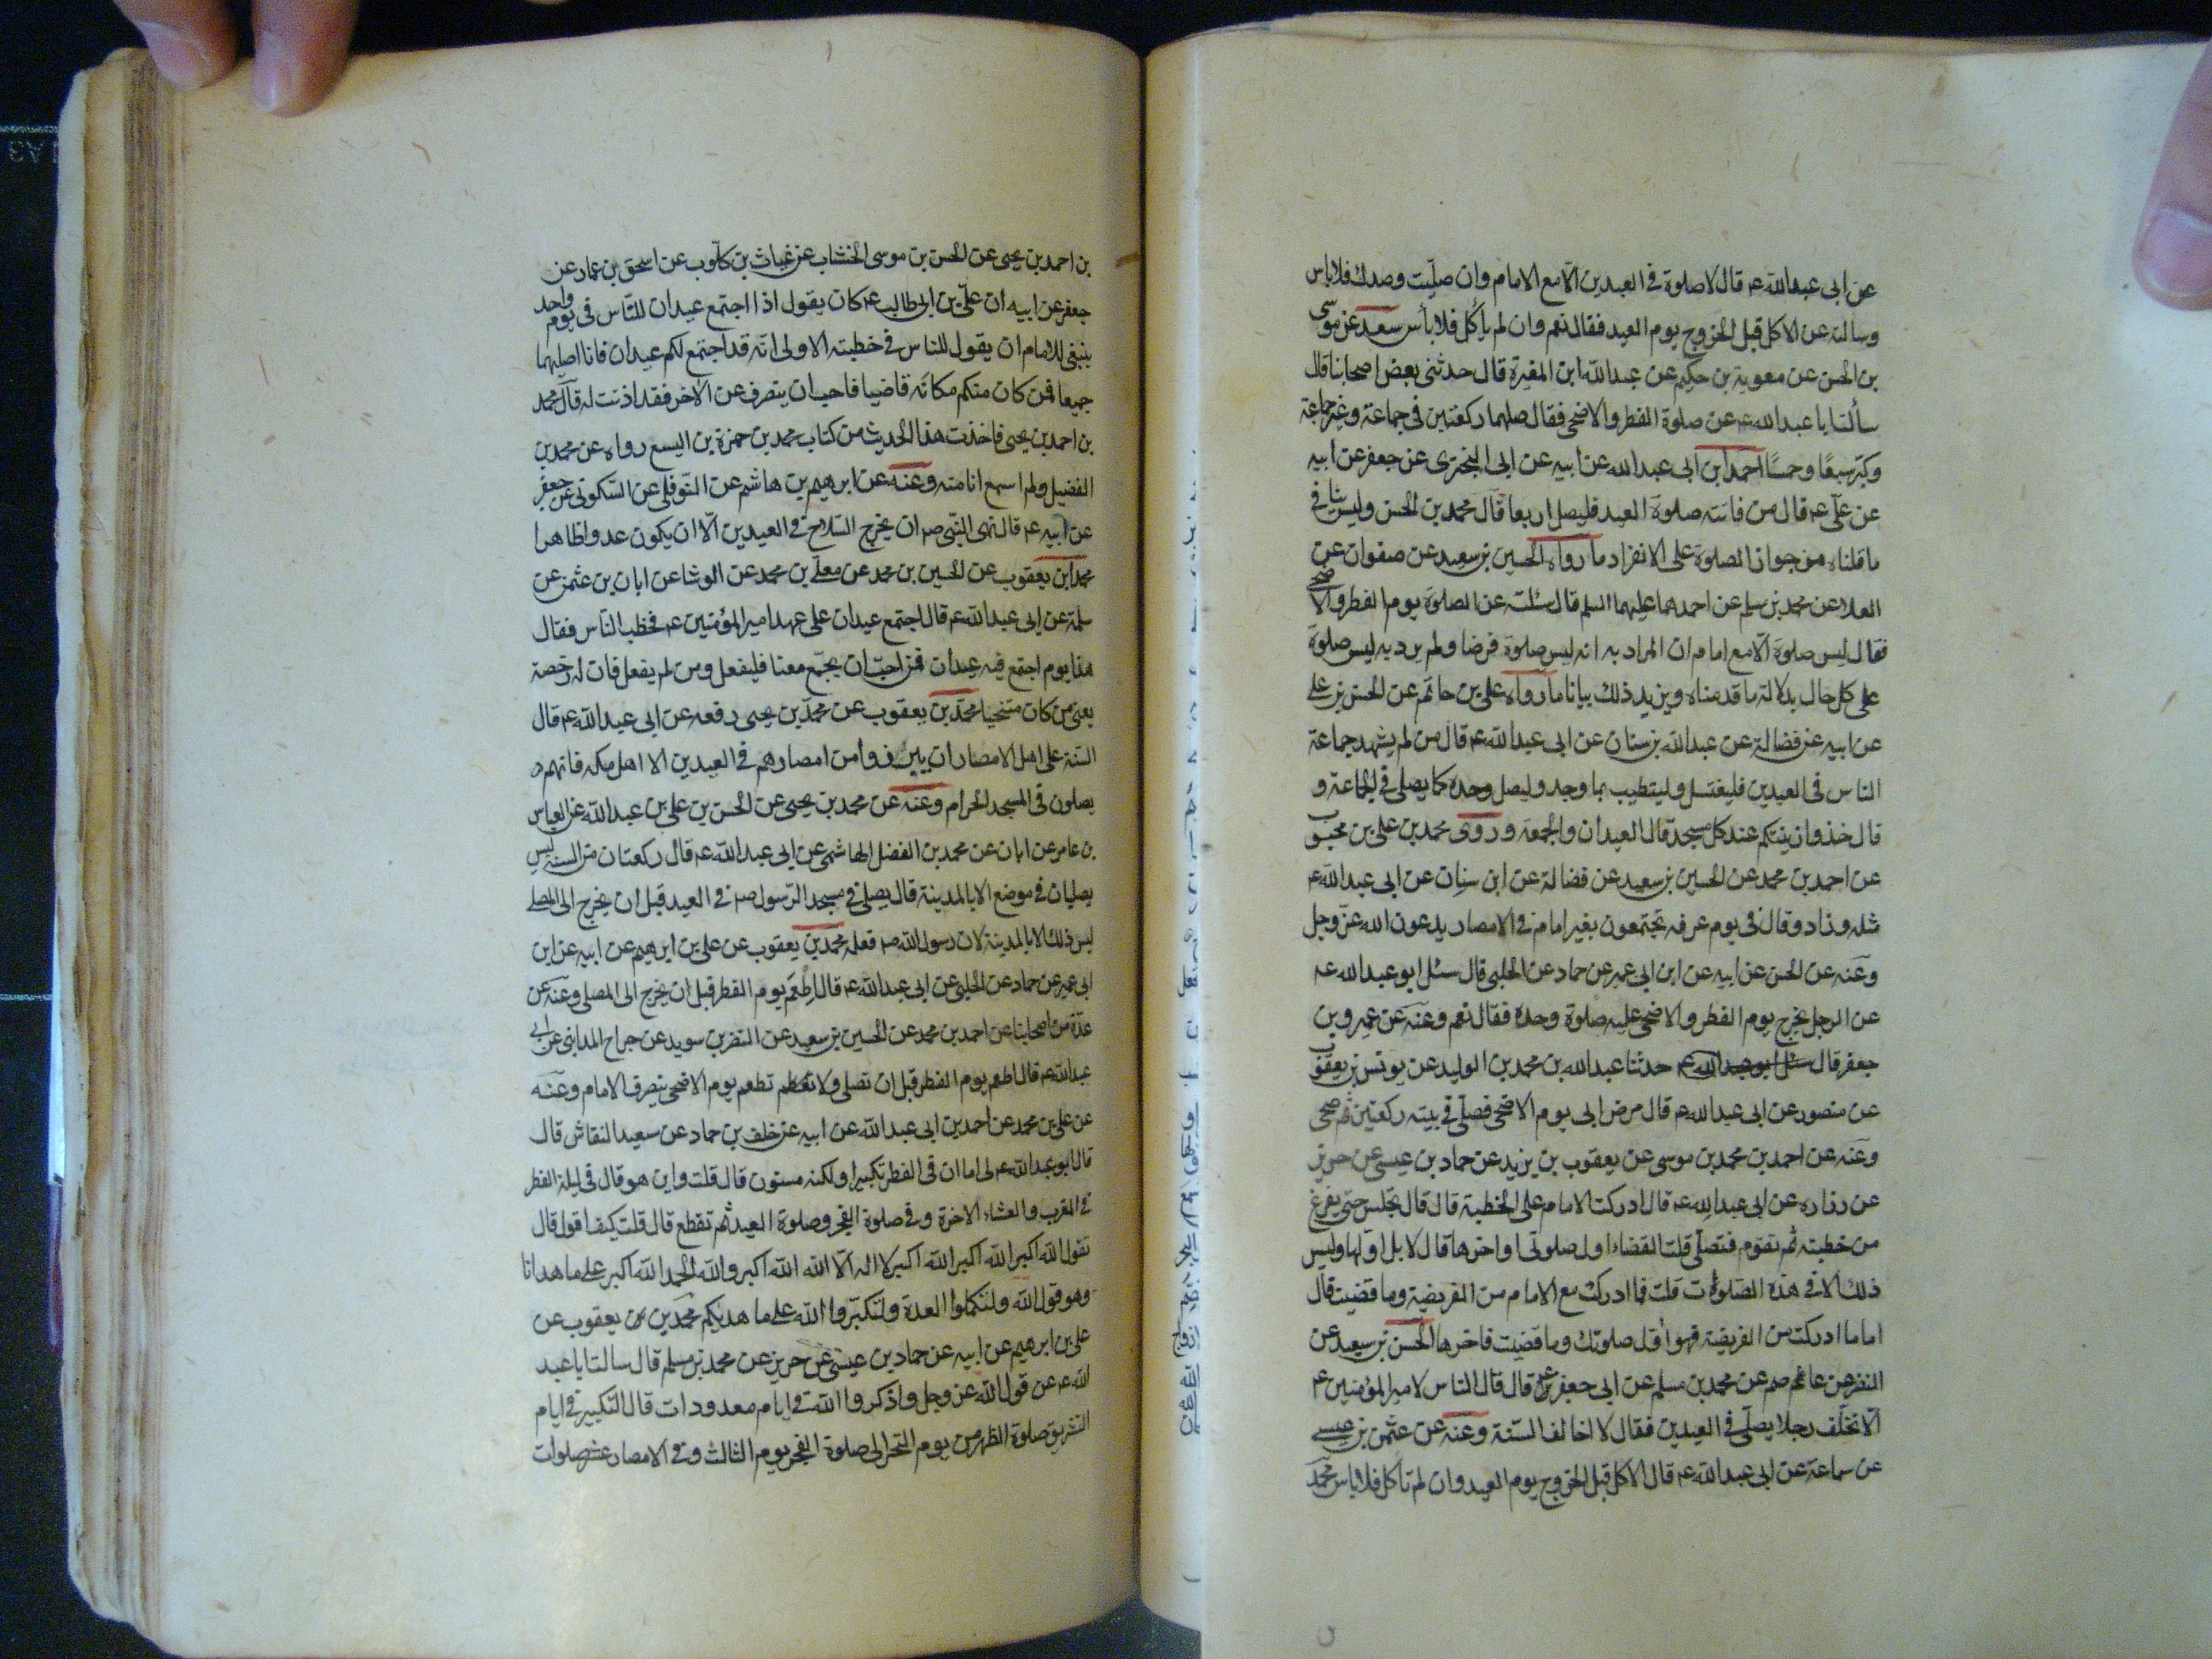 عن ابى عبدالله ع قال لا صلوة فى العيدين الا مع الامام وان صليت وحدك فلا باس
وسالته عن الاكل قبل الخروج يوم العيد فقال نعم وان لم ياكل فلا بأس سعد عن موسى
بن الحسن عن معوية بن حكيم عن عبدالله ابن المغيرة قال حدثنى بعض اصحابنا قال
سألت ابا عبدالله ع عن صلوة الفطر والاضحى فقال صلهما ركعتين فى جماعة وغير جماعة
وكبر سبعًا وخمسًا احمد ابن ابى عبدالله عن ابيه عن ابى البخترى عن جعفر عن ابيه
عن على ع قال من فاتته صلوة العيد فليصل اربعا قال محمد بن الحسن وليس ينافى
ما قلناه من جواز الصلوة على الانفراد ما رواه الحسين بن سعيد عن صفوان عن
العلا عن محمد بن مسلم عن احدهما عليهما السلم قال سئلته عن الصلوة يوم الفطر والاضحى
فقال ليس صلوة الا مع امام ان المراد به انه ليس صلوة فرضا ولم يرد به ليس صلوة
على كل حال بدلالة ما قدمناه ويزيد ذلك بيانا ما رواه على بن حاتم عن الحسن بن على
عن ابيه عن فضالة عن عبدالله بن سنان عن ابى عبدالله ع قال من لم يشهد جماعة
الناس فى العيدين فليغتسل وليتطيب بما وجد وليصل وحده كما يصلى فى الجماعة و
قال خذوا زينتكم عند كل مسجد قال العيدان والجمعة وروى محمد بن على بن محبوب
عن احمد بن محمد عن الحسين بن سعيد عن فضالة عن ابن سنان عن ابى عبدالله ع
مثله وزاد وقال فى يوم عرفه تجتمعون بغير امام فى الامصار يدعون الله عز وجل
وعنه عن الحسن عن ابيه عن ابن ابى عمير عن حماد عن الحلبى قال سئل ابو عبدالله ع
عن الرجل يخرج يوم الفطر والاضحى عليه صلوة وحده فقال نعم وعنه عن عمرو بن
جعفر قال حدثنا عبدالله بن محمد بن الوليد عن يونس بن يعقوب
عن منصور عن ابى عبدالله ع قال مرض ابى يوم الاضحى فصلى فى بيته ركعتين ثم ضحى
وعنه عن احمد بن محمد بن موسى عن يعقوب بن يزيد عن حماد بن عيسى عن حريز
عن زراره عن ابى عبدالله ع قال ادركت الامام على الخطبة قال قال تجلس حتى يفرغ
من خطبته ثم تقوم فتصلى قلت القضاء اول صلوتى او اخرها قال لا بل اولها وليس
ذلك الا فى هذه الصلوات قلت فما ادركت مع الامام من الفريضة وما قضيت قال
اما ما ادركت من الفريضة فهو اول صلوتك وما قضيت فاخرها الحسن بن سعيد عن
النضر عن عاصم عن محمد بن مسلم عن ابى جعفر ع قال قال الناس لامير المؤمنين ع
الا تخلف رجلا يصلى فى العيدين فقال لا اخالف السنة وعنه عن عثمن بن عيسى
عن سماعة عن ابى عبدالله ع قال الاكل قبل الخروج يوم العيد وان لم تاكل فلا باس محمد
بن احمد بن يحيى عن الحسن بن موسى الخشاب عن غياث بن كلوب عن اسحق بن عمار عن
جعفر عن ابيه ان على بن ابى طالب ع كان يقول اذا اجتمع عيدان للناس فى يوم واحد
ينبغى للامام ان يقول للناس فى خطبته الاولى انه قد اجتمع لكم عيدان فانا اصليهما
جميعا فمن كان منكم مكانه قاضيا فاحب ان يتصرف عن الاخر فقد اذنت له قال محمد
بن احمد بن يحيى فاخذت هذا الحديث من كتاب محمد بن حمزة بن اليسع رواه عن محمد بن
الفضيل ولم اسمع انا منه وعنه عن ابرهيم بن هاشم عن النوفلى عن السكونى عن جعفر
عن ابيه ع قال نهى النبى ص ان يخرج السلاح فى العيدين الا ان يكون عدوا ظاهرا
محمد ابن يعقوب عن الحسين بن محمد عن معلى بن محمد عن الوشا عن ابان بن عثمن عن
سلمة عن ابى عبدالله ع قال اجتمع عيدان على عهد امير المؤمنين ع فخطب الناس فقال
هذا يوم اجتمع فيه عيدان فمن احب ان يجمع معنا فليفعل ومن لم يفعل فان له رخصة
يعنى من كان متنحيا محمد بن يعقوب عن محمد بن يحيى رفعه عن ابى عبدالله ع قال
السنة على اهل الامصار ان يبرزوا من امصارهم فى العيدين الا اهل مكه فانهم
يصلون فى المسجد الحرام وعنه عن محمد بن يحيى عن الحسن بن على بن عبدالله عن العباس
بن عامر عن ابان عن محمد بن الفضل الهاشمى عن ابى عبدالله ع قال ركعتان من السنة ليس
يصليان فى موضع الا بالمدينة قال يصلى فى مسجد الرسول ص فى العيد قبل ان يخرج الى المصلى
ليس ذلك الا بالمدينة لان رسول الله ص فعله محمد بن يعقوب عن على بن ابرهيم عن ابيه عن ابن
ابى عمير عن حماد عن الحلبى عن ابى عبدالله ع قال اطعم يوم الفطر قبل ان يخرج الى المصلى وعنه عن
عدة من اصحابنا عن احمد بن محمد عن الحسين بن سعيد عن النضر بن سويد عن جراح المداينى عن ابى
عبدالله ع قال اطعم يوم الفطر قبل ان تصلى ولا تطعم يوم الاضحى ينصرف الامام وعنه
عن على بن محمد عن احمد بن ابى عبدالله عن ابيه عن خلف بن حماد عن سعيد النقاش قال
قال ابو عبدالله ع لى اما ان فى الفطر تكبيرا ولكنه مسنون قال قلت واين هو قال فى ليلة الفطر
فى المغرب والعشاء الاخرة وفى صلوة الفجر وصلوة العيد ثم تقطع قال قلت كيف اقول قال
تقول الله اكبر الله اكبر الله اكبر لا اله الا الله الله اكبر ولله الحمد الله اكبر على ما هدانا
وهو قول الله ولتكملوا العدة ولتكبروا الله على ما هديكم محمد بن يعقوب عن
على بن ابرهيم عن ابيه عن حماد بن عيسى عن حريز عن محمد بن مسلم قال سالت ابا عبد
الله ع عن قول الله عز وجل واذكروا الله فى ايام معدودات قال التكبير فى ايام
التشريق صلوة الظهر من يوم النحر الى صلوة الفجر يوم الثالث وفى الامصار عشر صلوات